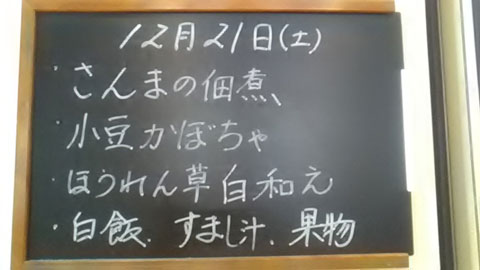 12月21日(土)
・さんまの佃煮、
・小豆かぼちゃ
・ほうれん草白和え
・白飯、すまし汁、果物